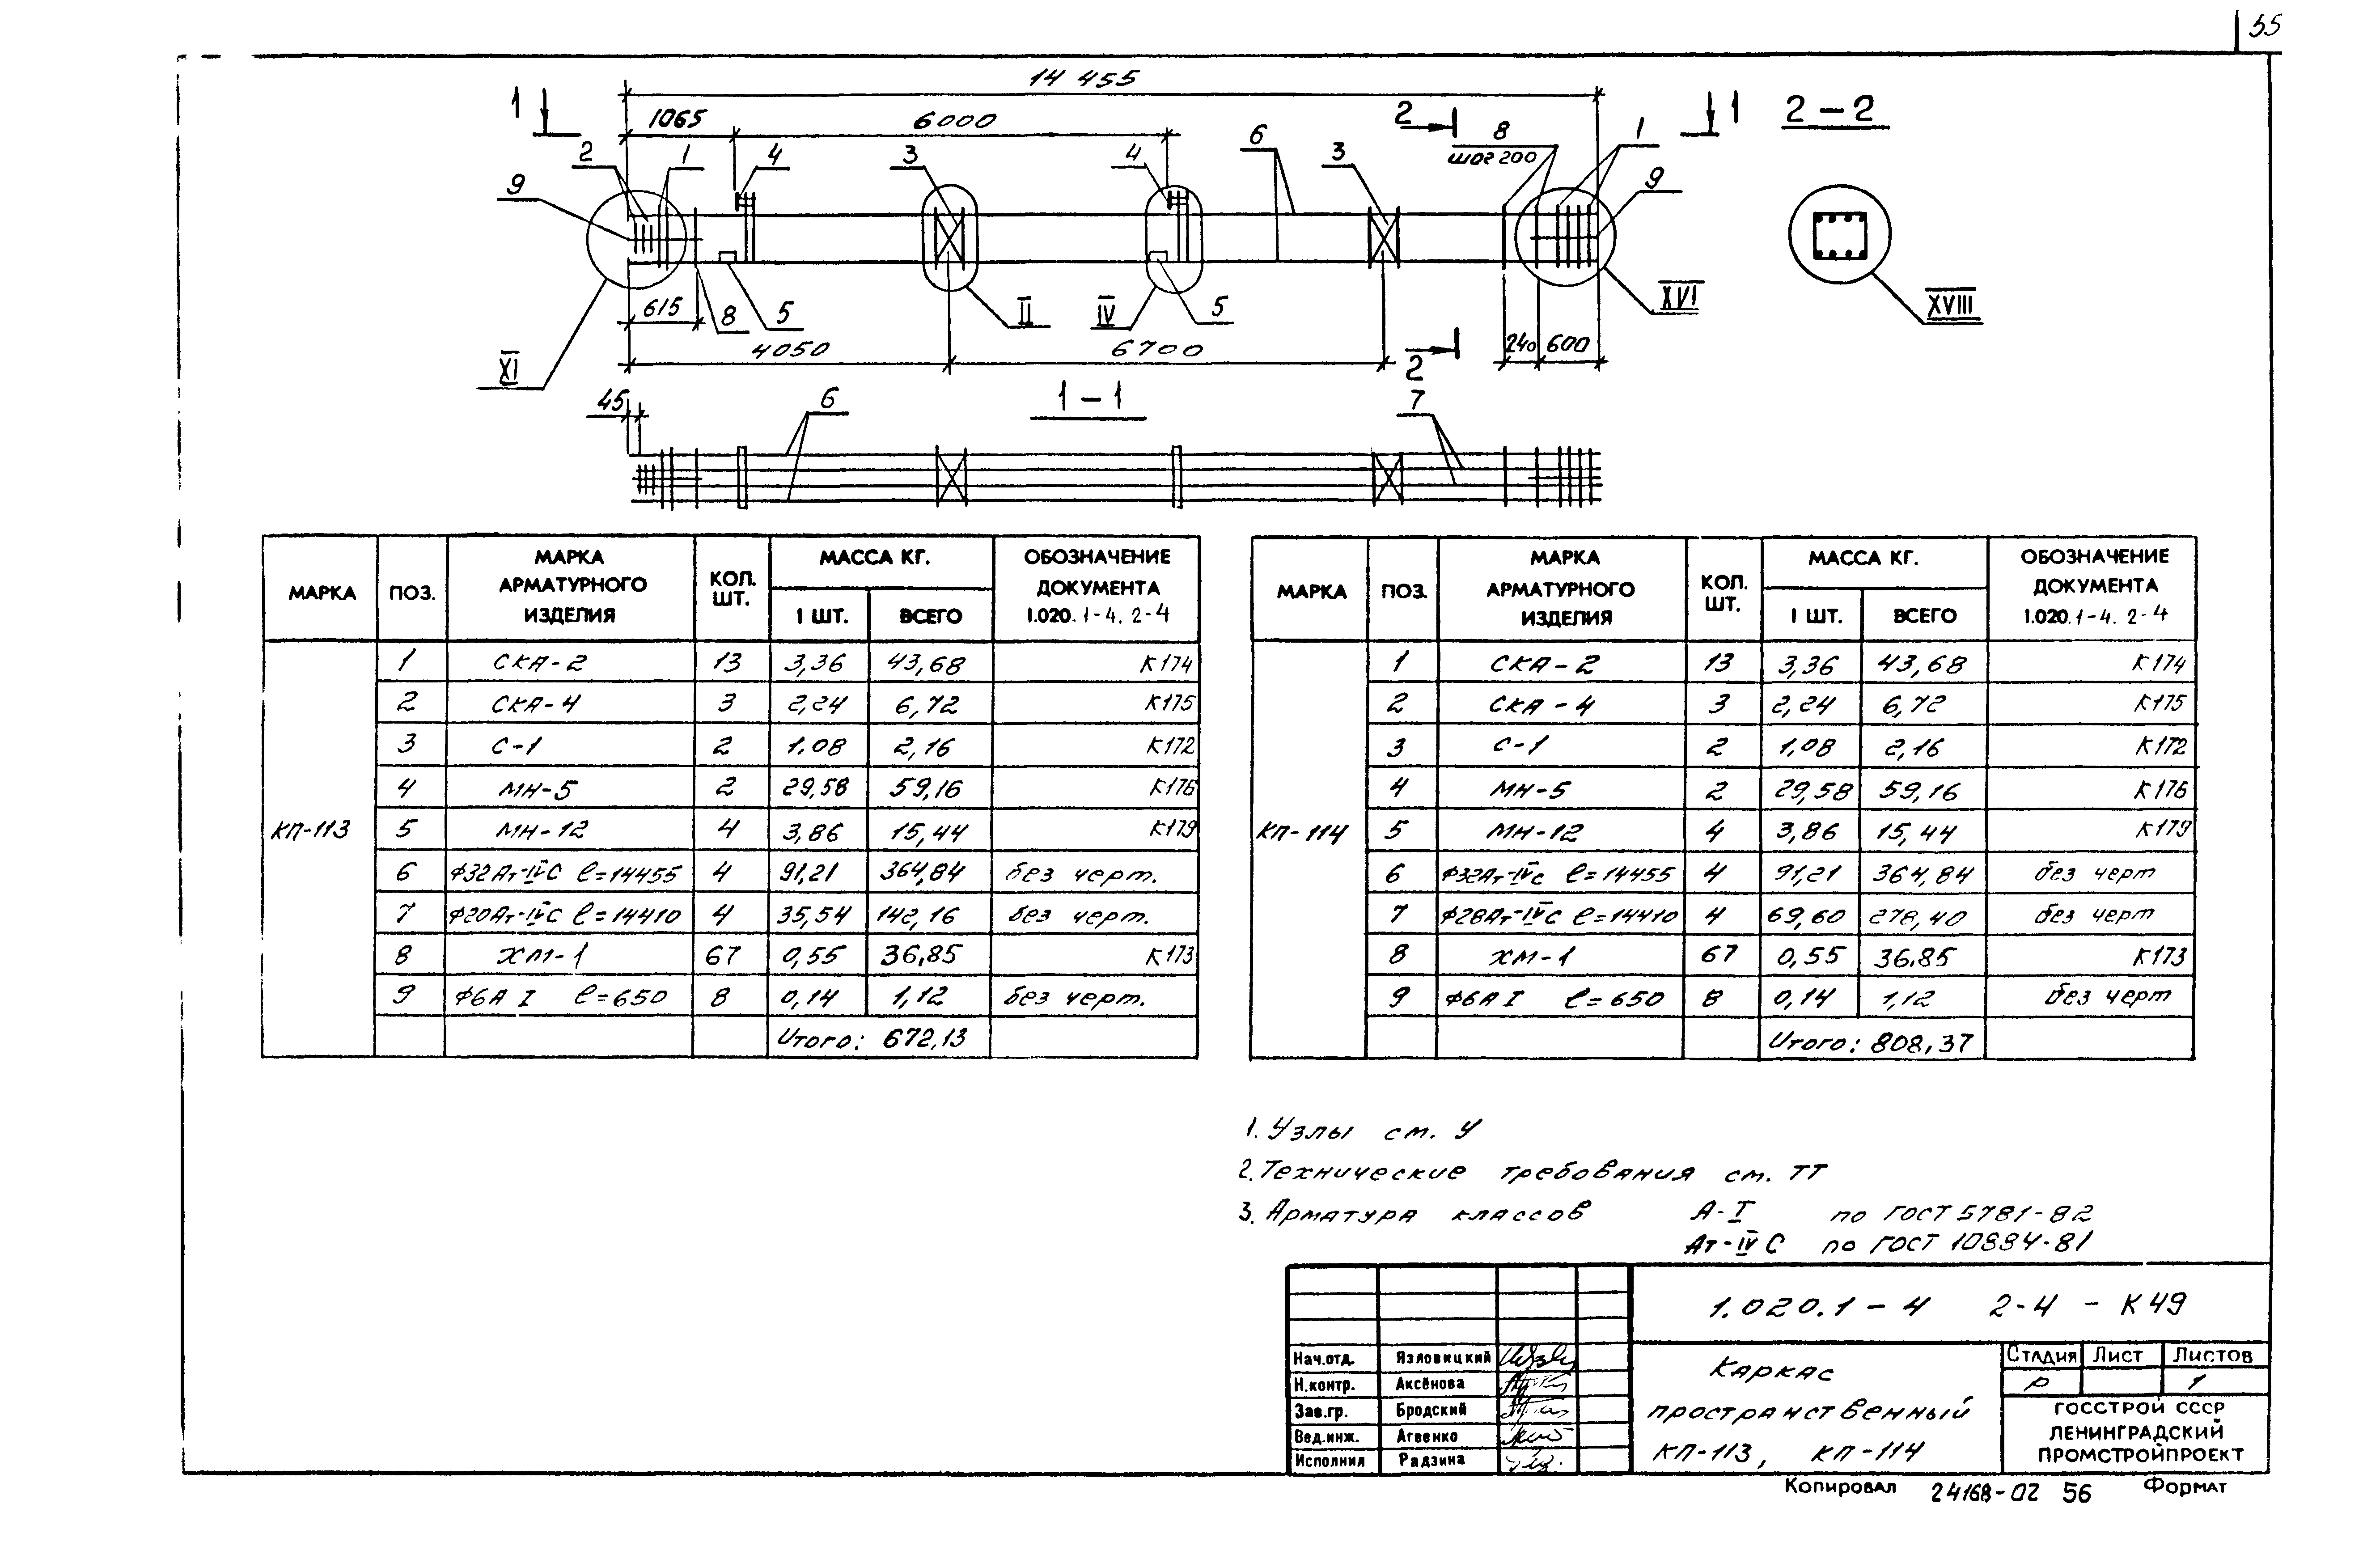 55
14 455
1 1065 6000 2 8 1 1 2-2
шаг 200
9 2 1 4 3 4 6 3 9
615 8 5 II IV 5 XVI XVIII
XI 4050 6700 2 240 600
45 6 1-1 7
МАРКА ПОЗ. МАРКА АРМАТУРНОГО ИЗДЕЛИЯ КОЛ. ШТ. МАССА КГ. 1 ШТ. ВСЕГО ОБОЗНАЧЕНИЕ ДОКУМЕНТА 1.020.1-4. 2-4
КП-113
1 СКА-2 13 3,36 43,68 К174
2 СКА-4 3 2,24 6,72 К175
3 С-1 2 1,08 2,16 К172
4 МН-5 2 29,58 59,16 К176
5 МН-12 4 3,86 15,44 К179
6 Ф32Ат-IVС ℓ=14455 4 91,21 364,84 без черт.
7 Ф20Ат-IVС ℓ=14410 4 35,54 142,16 без черт.
8 ХМ-1 67 0,55 36,85 К173
9 Ф6А I ℓ=650 8 0,14 1,12 без черт.
Итого: 672,13
МАРКА ПОЗ. МАРКА АРМАТУРНОГО ИЗДЕЛИЯ КОЛ. ШТ. МАССА КГ. 1 ШТ. ВСЕГО ОБОЗНАЧЕНИЕ ДОКУМЕНТА 1.020.1-4. 2-4
КП-114
1 СКА-2 13 3,36 43,68 К174
2 СКА-4 3 2,24 6,72 К175
3 С-1 2 1,08 2,16 К172
4 МН-5 2 29,58 59,16 К176
5 МН-12 4 3,86 15,44 К179
6 Ф32Ат-IVС ℓ=14455 4 91,21 364,84 без черт
7 Ф28Ат-IVС ℓ=14410 4 69,60 278,40 без черт
8 ХМ-1 67 0,55 36,85 К173
9 Ф6А I ℓ=650 8 0,14 1,12 без черт
Итого: 808,37
1. Узлы см. У
2. Технические требования см. ТТ
3. Арматура классов А-I по ГОСТ 5781-82
Ат-IVС по ГОСТ 10884-81
1.020.1-4 2-4 - К49
Нач.отд. Язловицкий
Н.контр. Аксёнова
Зав.гр. Бродский
Вед.инж. Агеенко
Исполнил Радзина
Каркас
пространственный
КП-113, КП-114
Стадия Лист Листов
Р 1
ГОССТРОЙ СССР
ЛЕНИНГРАДСКИЙ
ПРОМСТРОЙПРОЕКТ
Копировал 24168-02 56 Формат